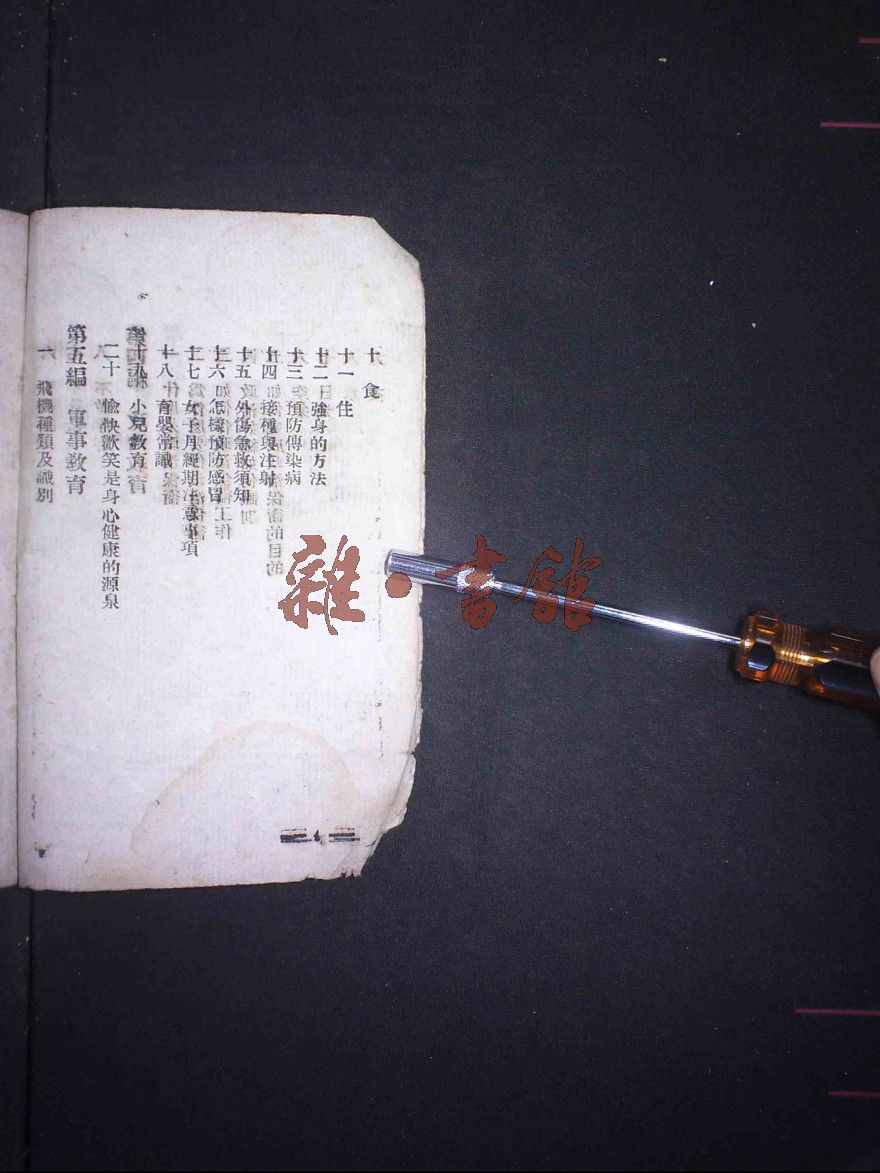 十 食
十一 住
十二 強身的方法
十三 預防傳染病
十四 接種與注射
十五 外傷急救須知
十六 怎樣預防感冒
十七 女子月經期注意事項
十八 育嬰常識
小兒教育
二十 愉快歡笑是身心健康的源泉
第五編 軍事教育
一 飛機種類及識別
雜·書館